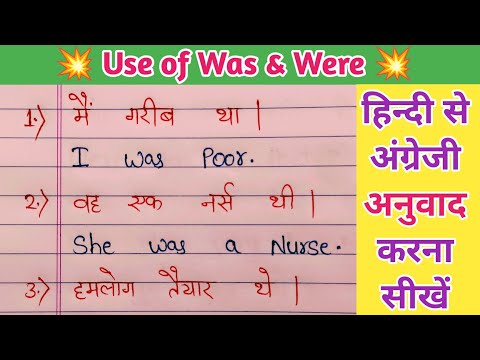 💥 Use of Was & Were 💥
1.) मैं गरीब था |
I was Poor.
2.) वह एक नर्स थी |
She was a Nurse.
3.) हमलोग तैयार थे |
हिन्दी से
अंग्रेजी
अनुवाद
करना
सीखें